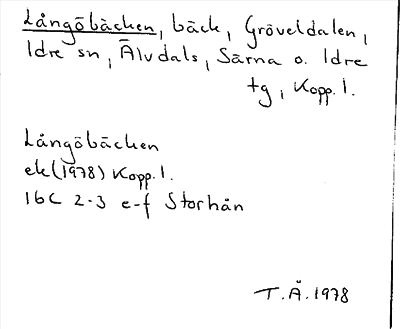 Långöbäcken, bäck, Gröveldalen,
Idre sn, Älvdals, Särna o. Idre
tg, Kopp. l.
Långöbäcken
ek (1978) Kopp. l.
16C 2-3 e-f Storhån
T.Å. 1978